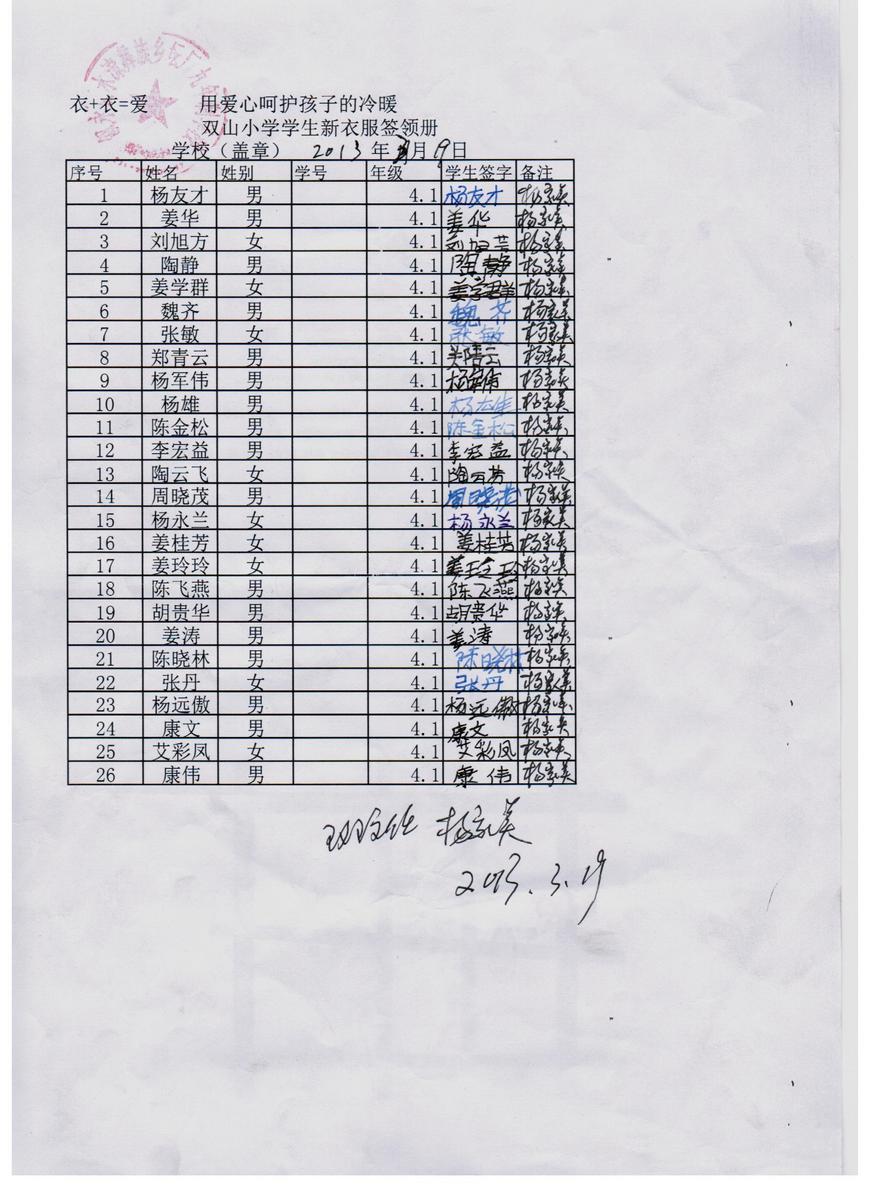 衣+衣=爱 用爱心呵护孩子的冷暖
双山小学学生新衣服签领册
学校（盖章） 2013 年 3月19日
序号 姓名 姓别 学号 年级 学生签字 备注
1 杨友才 男 4.1 杨友才 杨家美
2 姜华 男 4.1 姜华 杨家美
3 刘旭方 女 4.1 刘旭芳 杨家美
4 陶静 男 4.1 陶静 杨家美
5 姜学群 女 4.1 姜学群 杨家美
6 魏齐 男 4.1 魏齐 杨家美
7 张敏 女 4.1 张敏 杨家美
8 郑青云 男 4.1 杨家美
9 杨军伟 男 4.1 杨军伟 杨家美
10 杨雄 男 4.1 杨家美
11 陈金松 男 4.1 陈金松 杨家美
12 李宏益 男 4.1 李宏益 杨家美
13 陶云飞 女 4.1 陶云芳 杨家美
14 周晓茂 男 4.1 周晓茂 杨家美
15 杨永兰 女 4.1 杨永兰 杨家美
16 姜桂芳 女 4.1 姜桂芳 杨家美
17 姜玲玲 女 4.1 姜玲玲 杨家美
18 陈飞燕 男 4.1 陈飞燕 杨家美
19 胡贵华 男 4.1 胡贵华 杨家美
20 姜涛 男 4.1 姜涛 杨家美
21 陈晓林 男 4.1 陈晓林 杨家美
22 张丹 女 4.1 张丹 杨家美
23 杨远傲 男 4.1 杨远傲 杨家美
24 康文 男 4.1 康文 杨家美
25 艾彩凤 女 4.1 艾彩凤 杨家美
26 康伟 男 4.1 康伟 杨家美
班主任 杨家美
2013.3.19